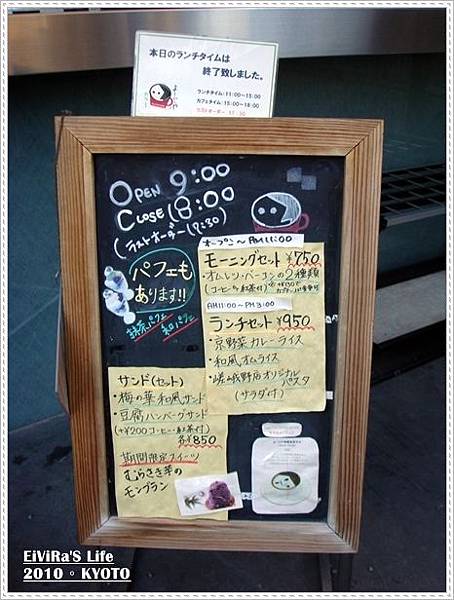 本日のランチタイムは
終了致しました。
ランチタイム：11:00～15:00
カフェタイム：15:00～18:00
ラストオーダー 17:30
よーじや
OPEN 9:00
CLOSE 18:00
(ラストオーダー 17:30)
パフェも
あります!!
抹茶パフェ
和パフェ
オープン～AM11:00
モーニングセット ¥750
・オムレツ・ベーコンの2種類
(コーヒー/紅茶付)
AM11:00～PM3:00
ランチセット ¥950
・京野菜カレーライス
・和風オムライス
・嵯峨野店オリジナル
パスタ
(サラダ付)
サンド(セット)
・梅の葉和風サンド
・豆腐ハンバーグサンド
(+¥200 コーヒー・紅茶付)
各¥850
期間限定スイーツ
むらさき芋の
モンブラン
EiViRa'S Life
2010。KYOTO